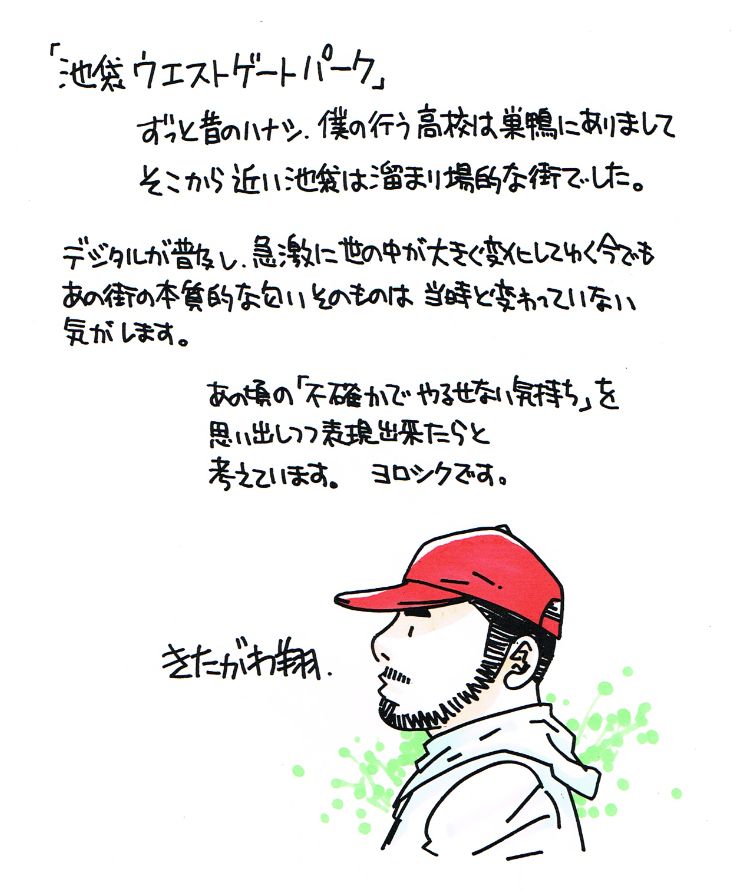 「池袋ウエストゲートパーク」
ずっと昔のハナシ、僕の行う高校は巣鴨にありまして
そこから近い池袋は溜まり場的な街でした。
デジタルが普及し、急激に世の中が大きく変化してゆく今でも
あの街の本質的な匂いそのものは 当時と変わっていない
気がします。
あの頃の「不確かで やるせない気持ち」を
思い出しつつ表現出来たらと
考えています。 ヨロシクです。
きたがわ翔.